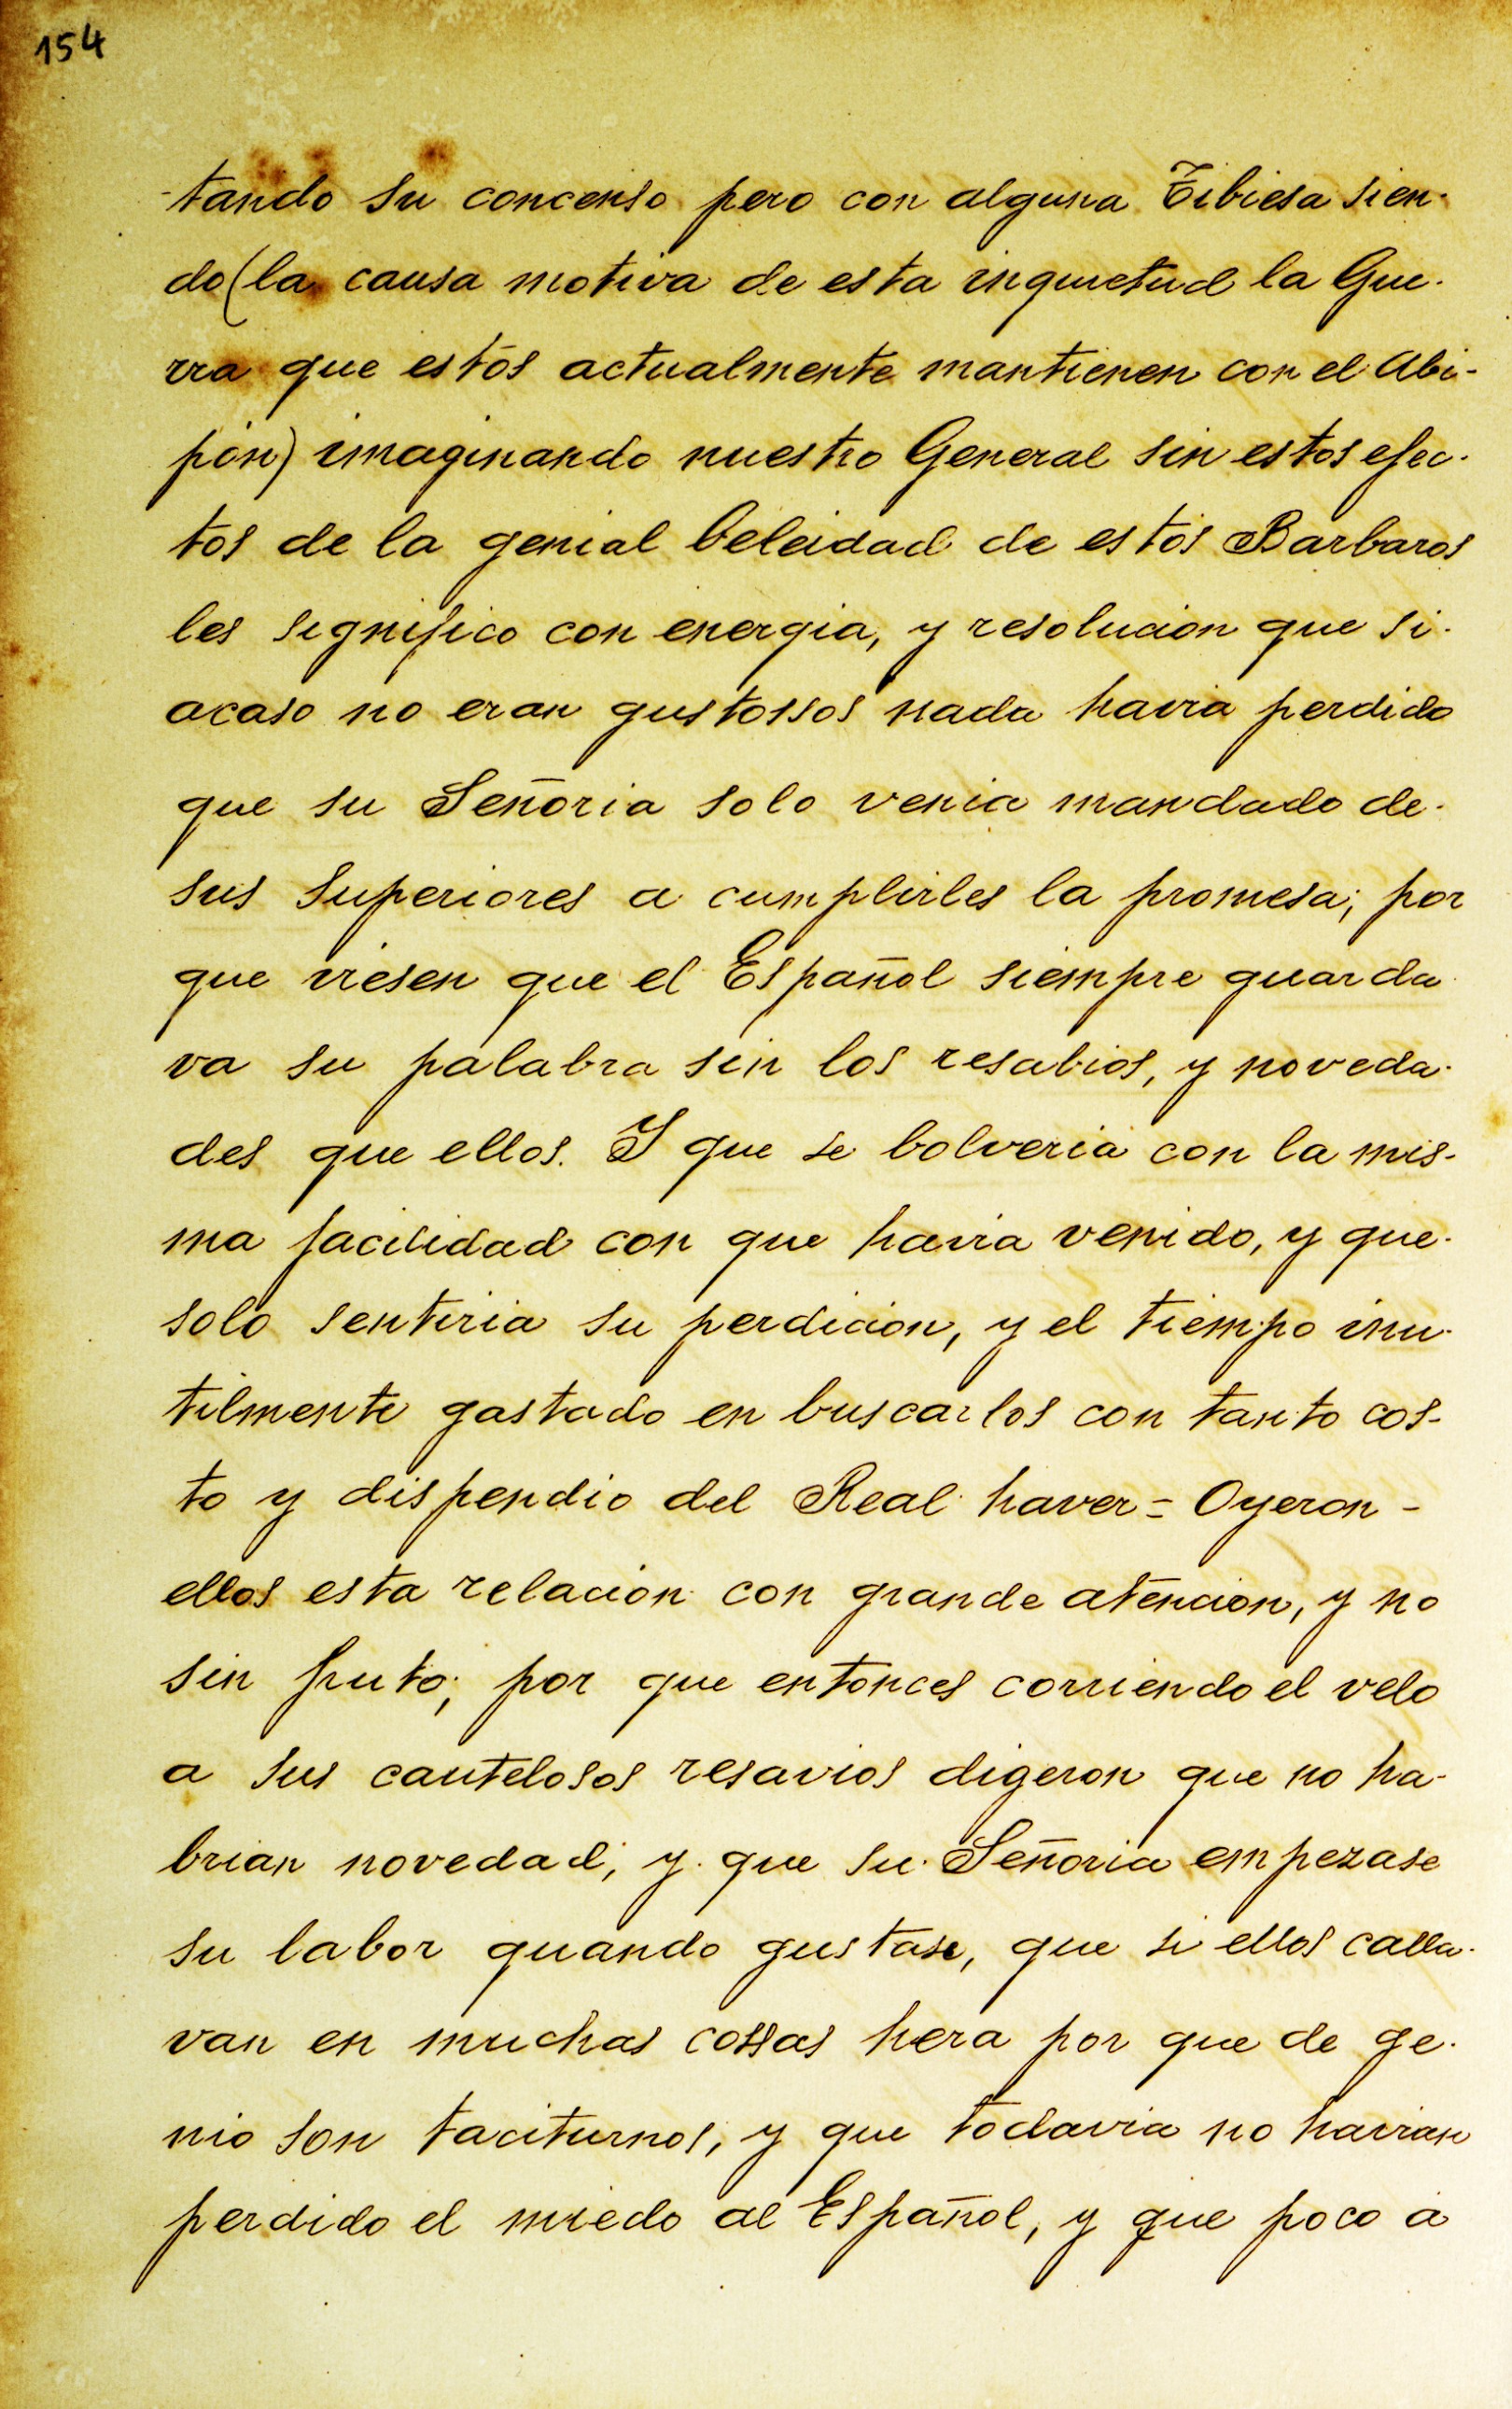 154
-tando su concenso pero con alguna Tibiesa sien-
do (la causa motiva de esta inquietud la Gue-
rra que estos actualmente mantienen con el Abi-
pón) imaginando nuestro General sin estos efec-
tos de la genial beleidad de estos Barbaros
les significo con energia, y resolucion que si-
acaso no eran gustossos nada havia perdido
que su Señoria solo venia mandado de-
sus Superiores a cumplirles la promesa; por
que viesen que el Español siempre guarda-
va su palabra sin los resabios, y noveda-
des que ellos. Y que se bolveria con la mis-
ma facilidad con que havia venido, y que-
solo sentiria su perdicion, y el tiempo inu-
tilmente gastado en buscarlos con tanto cos-
to y dispendio del Real haver = Oyeron -
ellos esta relacion con grande atencion, y no
sin fruto; por que entonces corriendo el velo
a sus cautelosos resavios digeron que no ha-
brian novedad; y que su Señoria empezase
su labor quando gustase, que si ellos calla-
van en muchas cossas hera por que de ge-
nio son taciturnos, y que todavia no havian
perdido el miedo al Español, y que poco a